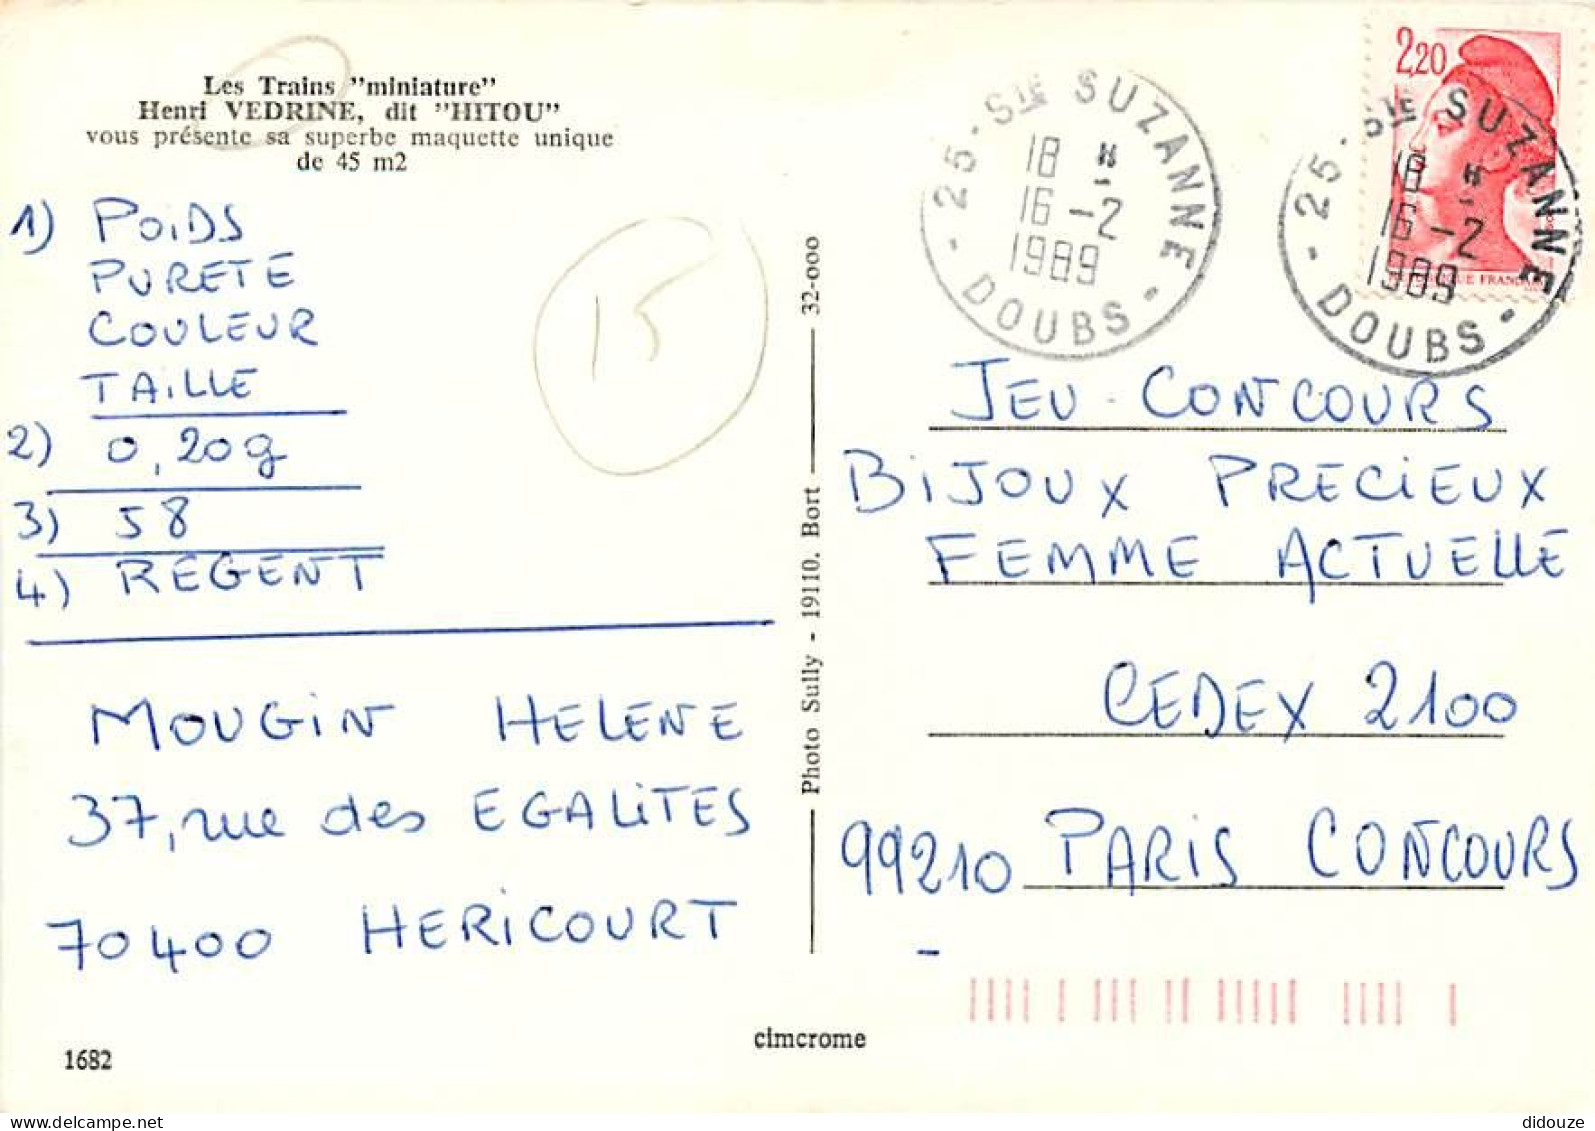 Les Trains "miniature"
Henri VEDRINE, dit "HITOU"
vous présente sa superbe maquette unique
de 45 m2
1) POIDS
PURETE
COULEUR
TAILLE
2) 0,20g
3) 58
4) REGENT
MOUGIN HELENE
37, rue des EGALITES
70400 HERICOURT
1682
15
Photo Sully - 19110. Bort 32-000
cimcrome
25 - Ste SUZANNE
18 H
16 - 2
1989
- DOUBS -
2,20
25 - Ste SUZANNE
18 H
16 - 2
1989
- DOUBS -
JEU - CONCOURS
BIJOUX PRECIEUX
FEMME ACTUELLE
CEDEX 2100
99210 PARIS CONCOURS
-
delcampe.net
didouze